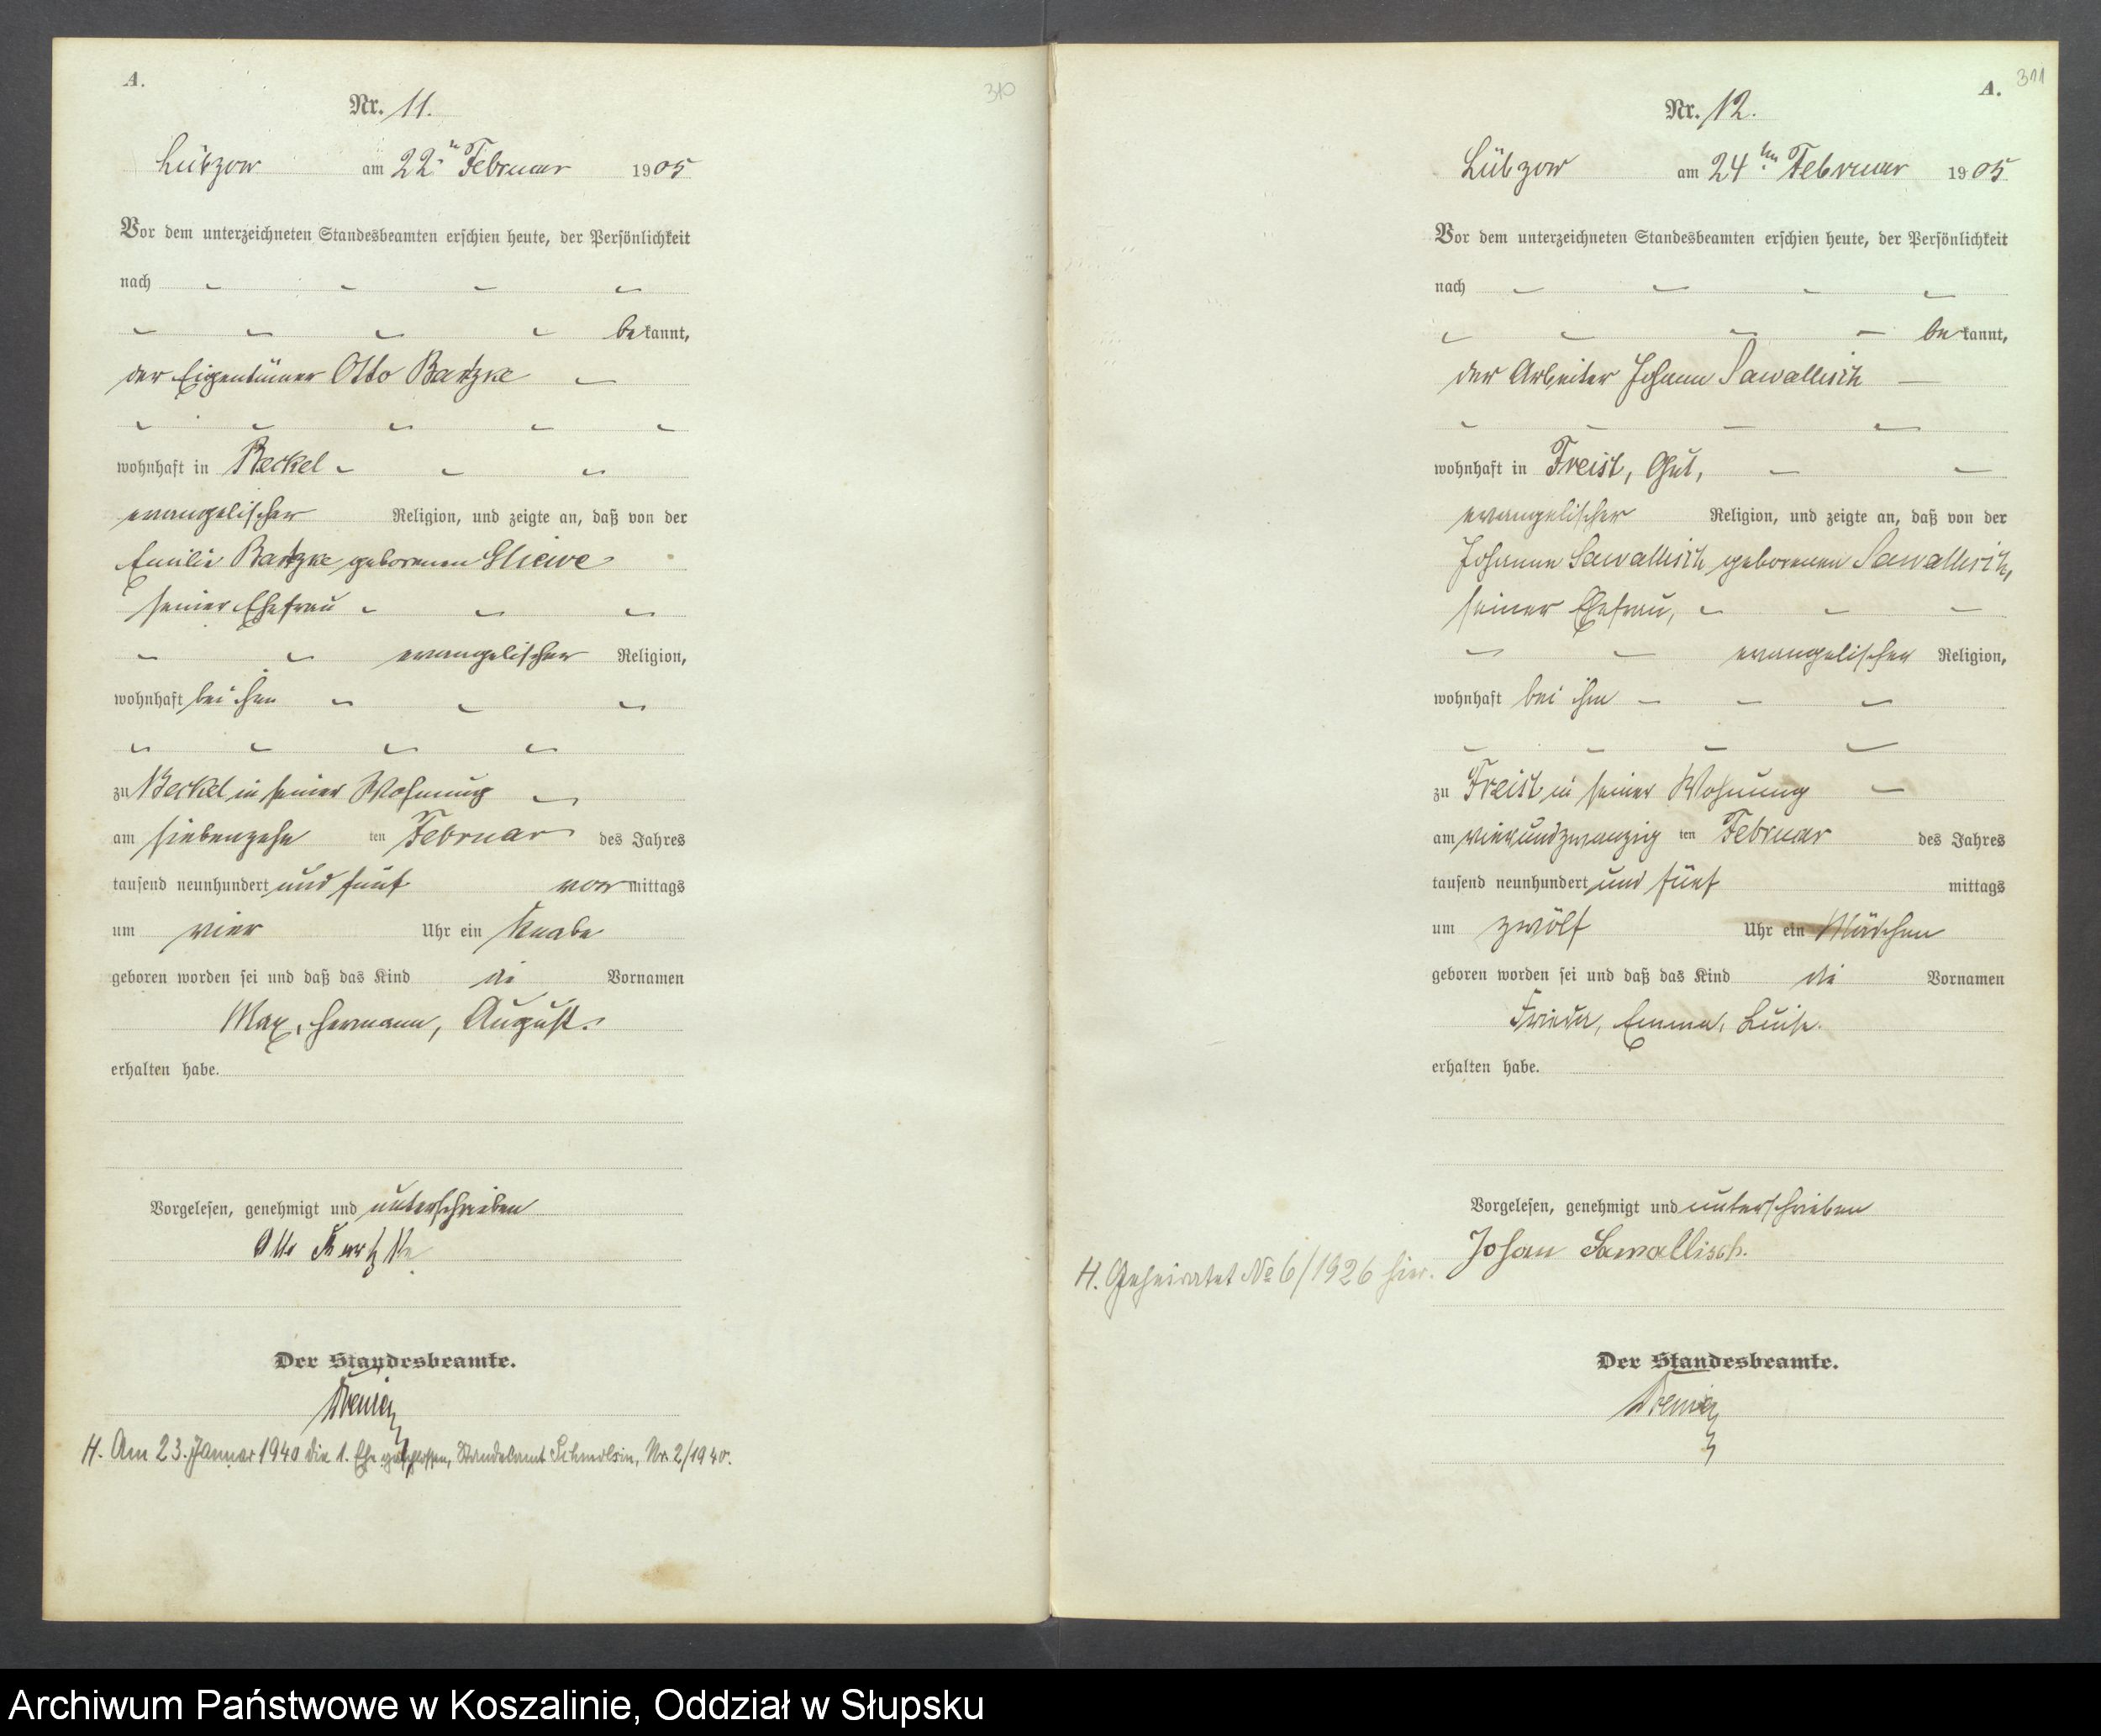 A.
310
Nr. 11.
Lübzow am 22.ⁿ Februar 1905
Vor dem unterzeichneten Standesbeamten erschien heute, der Persönlichkeit
nach
bekannt,
der Eigentümer Otto Batzke
wohnhaft in Beckel
evangelischer Religion, und zeigte an, daß von der
Emilie Batzke geborenen Gliewe
seiner Ehefrau
evangelischer Religion,
wohnhaft bei ihm
zu Beckel in seiner Wohnung
am siebenzehn ten Februar des Jahres
tausend neunhundert und fünf vor mittags
um vier Uhr ein Knabe
geboren worden sei und daß das Kind die Vornamen
Max, Hermann, August.
erhalten habe.
Vorgelesen, genehmigt und unterschrieben
Otto
Der Standesbeamte.
H. Am 23. Januar 1940 die 1. Ehe geschlossen, Standesamt Schmolsin, Nr. 2/1940.
A.
311
Nr. 12.
Lübzow am 24ten Februar 1905
Vor dem unterzeichneten Standesbeamten erschien heute, der Persönlichkeit
nach
bekannt,
der Arbeiter Johann Sawallisch
wohnhaft in Freist, Gut,
evangelischer Religion, und zeigte an, daß von der
Johanne Sawallisch geborenen Sawallisch,
seiner Ehefrau,
evangelischer Religion,
wohnhaft bei ihm
zu Freist in seiner Wohnung
am vierundzwanzig ten Februar des Jahres
tausend neunhundert und fünf mittags
um zwölf Uhr ein Mädchen
geboren worden sei und daß das Kind die Vornamen
Frieda, Emma, Luise.
erhalten habe.
Vorgelesen, genehmigt und unterschrieben
Johan Sawallisch.
H. Geheiratet No 6/1926 hier.
Der Standesbeamte.
Archiwum Państwowe w Koszalinie, Oddział w Słupsku